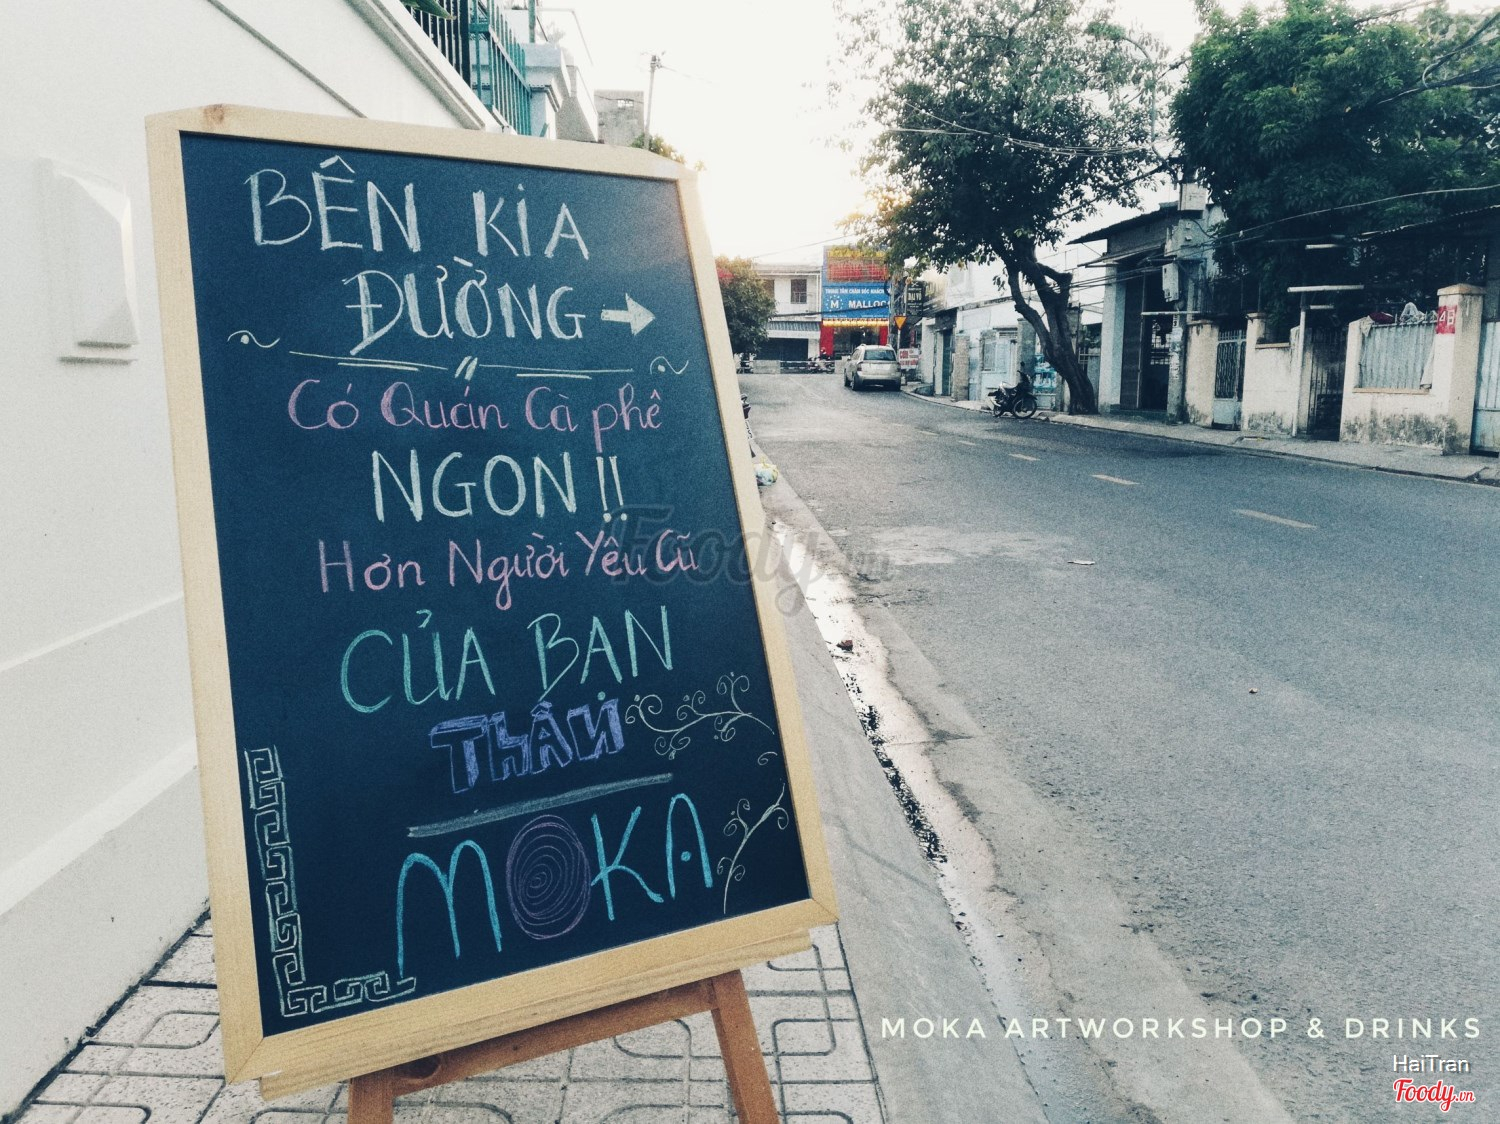 BÊN KIA
ĐƯỜNG →
Có Quán Cà phê
NGON!!
Hơn Người Yêu Cũ
CỦA BẠN
THÂN
MOKA
MALLOCA
4B
Foody.vn
MOKA ARTWORKSHOP & DRINKS
HaiTran
Foody.vn